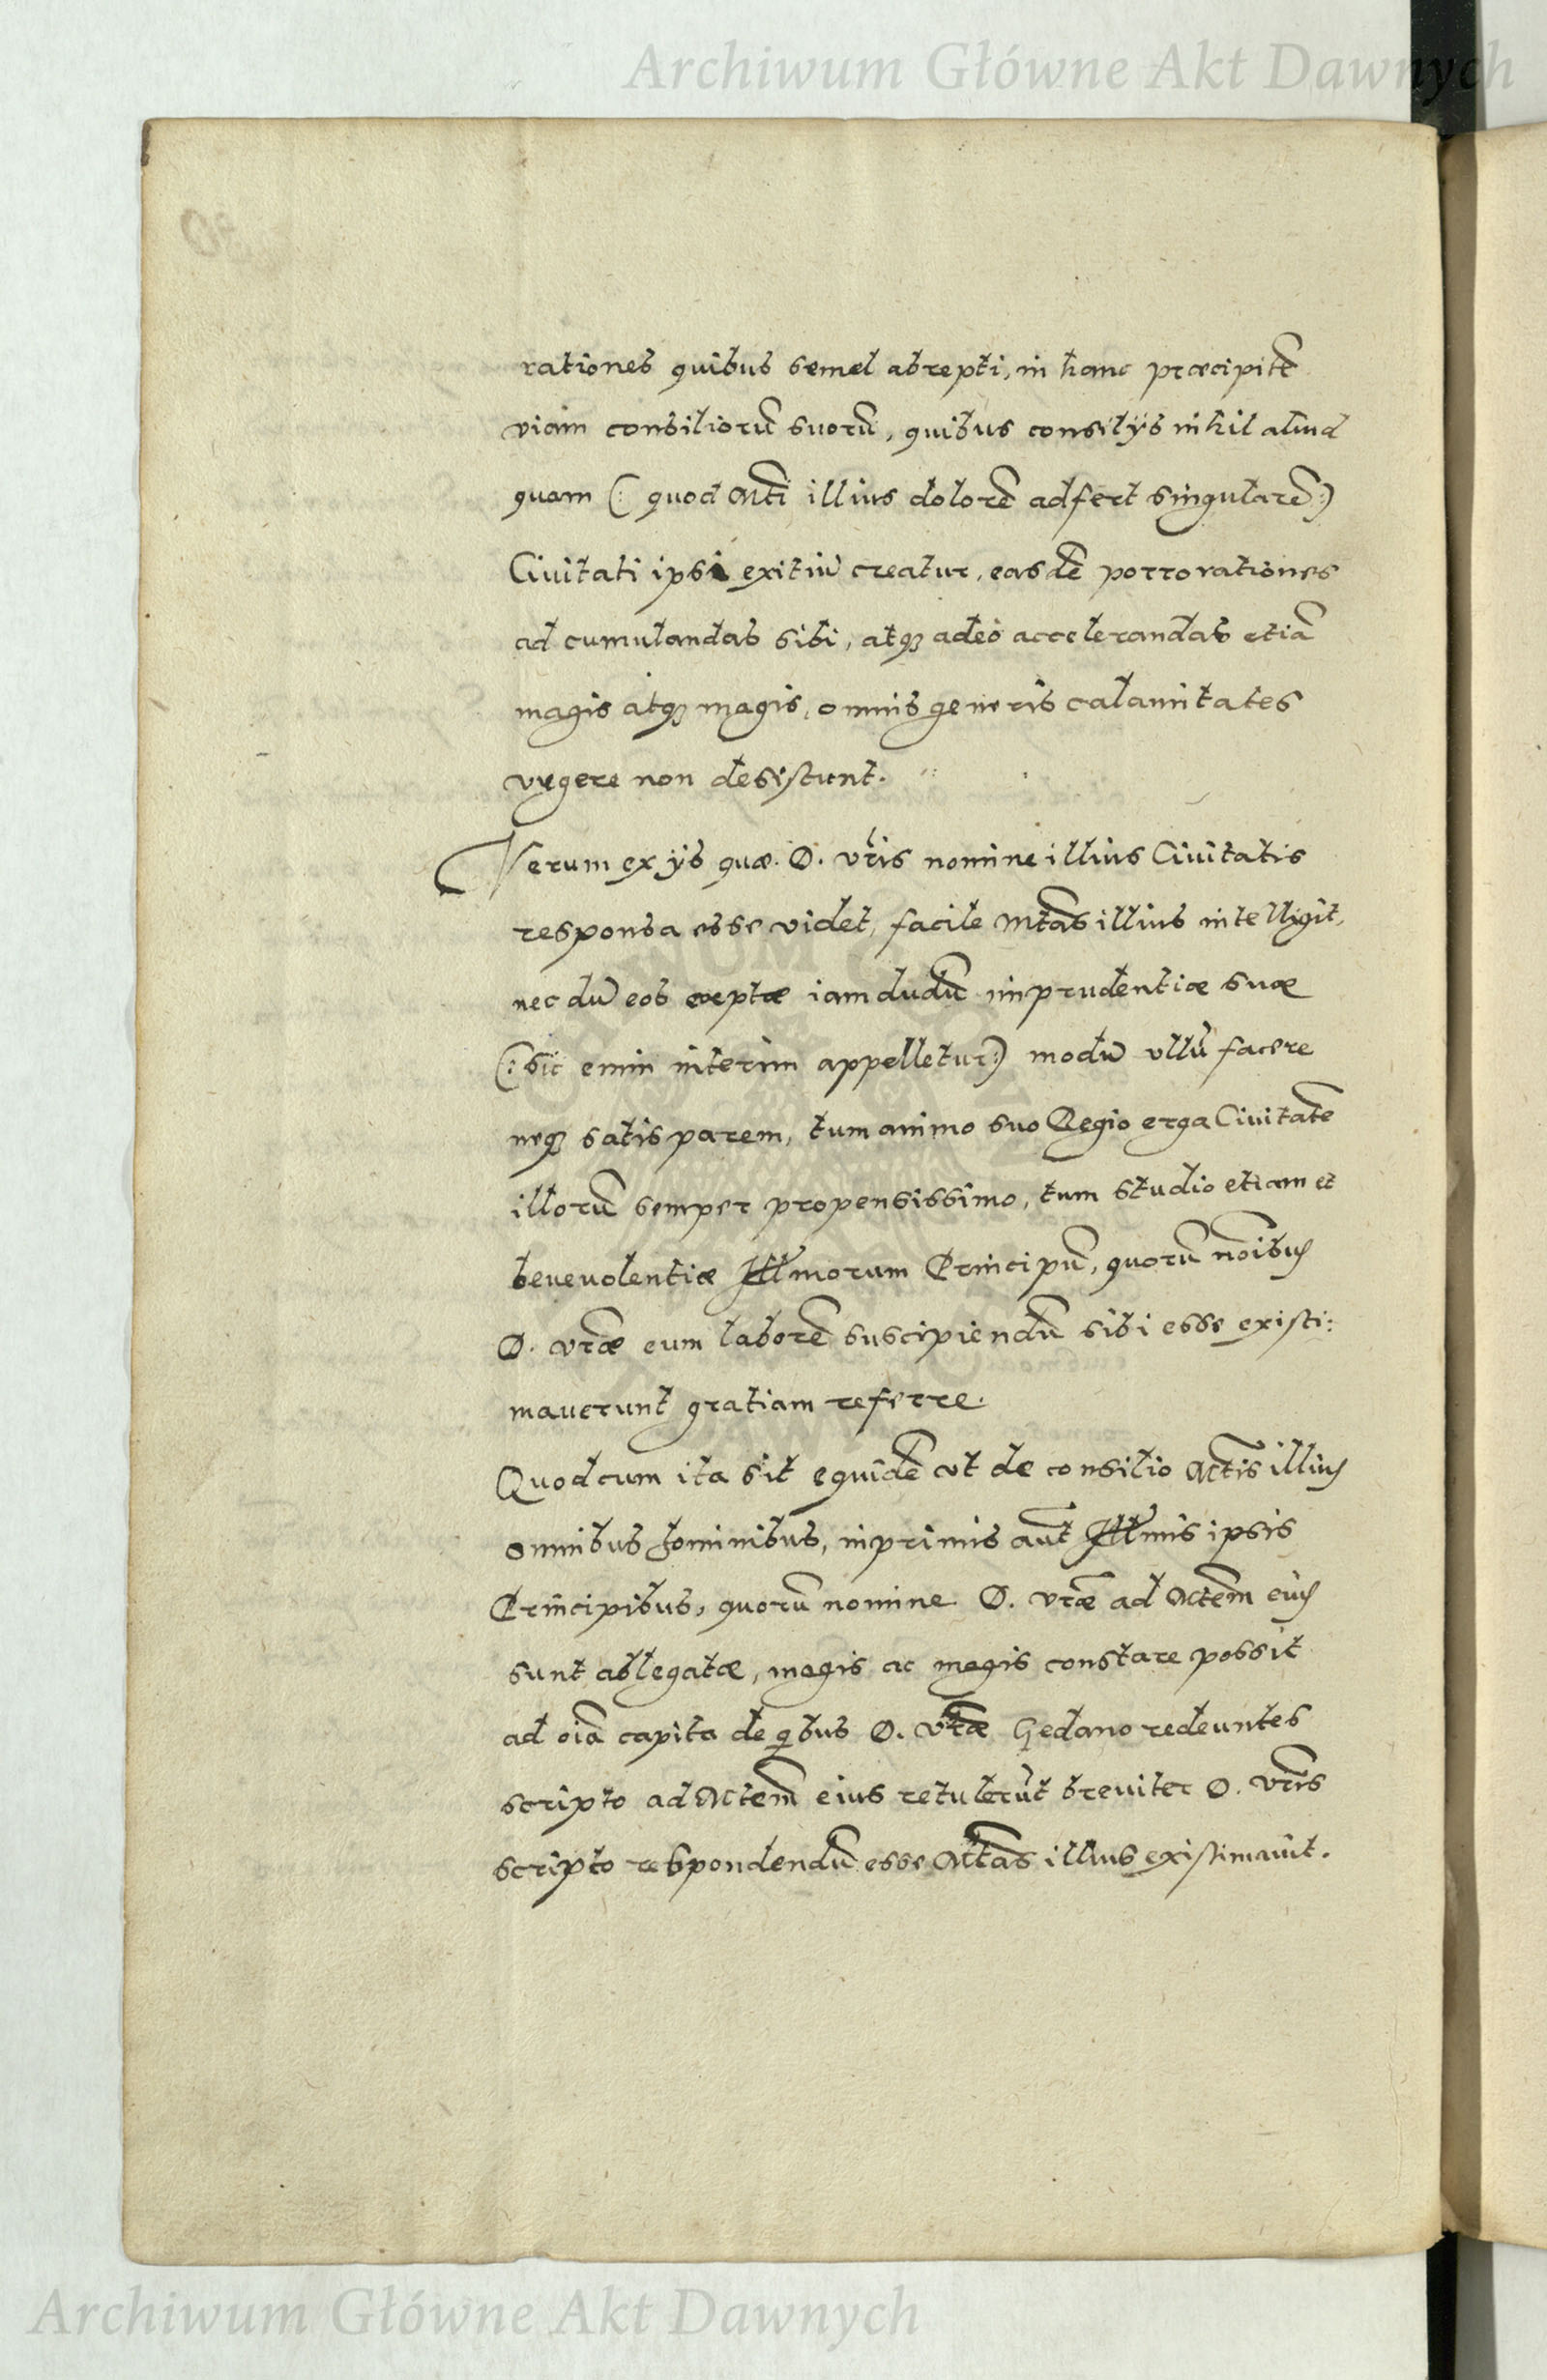 Archiwum Główne Akt Dawnych
rationes quibus semel abrepti, in hanc præcipitē
viam consiliorū suorū, quibus consilijs nihil aliud
quam (: quod Mti illius dolorē adfert singularē :)
Ciuitati ipsi exitiū creatur, easdē porro rationes
ad cumulandas sibi, atq; adeo accelerandas etiā
magis atq; magis, omnis generis calamitates
vrgere non desistunt.
Verum ex ijs quæ D. vris nomine illius Ciuitatis
responsa esse videt, facile Mtas illius intelligit,
nec dū eos cœptæ iamdudū imprudentiæ suæ
(: sic enim interim appelletur :) modū vllū facere
neq; satis parem, tum animo suo Regio erga Ciuitatē
illorū semper propensissimo, tum studio etiam et
beneuolentiæ Illmorum Principū, quorū noibus
D. vræ eum laborē suscipiendū sibi esse existi:
mauerunt gratiam referre.
Quod cum ita sit equidē vt de consilio Mtis illius
omnibus hominibus, inprimis aut Illmis ipsis
Principibus, quorū nomine D. vræ ad Mtem eius
sunt ablegatæ, magis ac magis constare possit
ad oia capita de qibus D. vræ Gedano redeuntes
scripto ad Mtem eius retulerūt breuiter D. vris
scripto respondendū esse Mtas illius existimauit.
Archiwum Główne Akt Dawnych